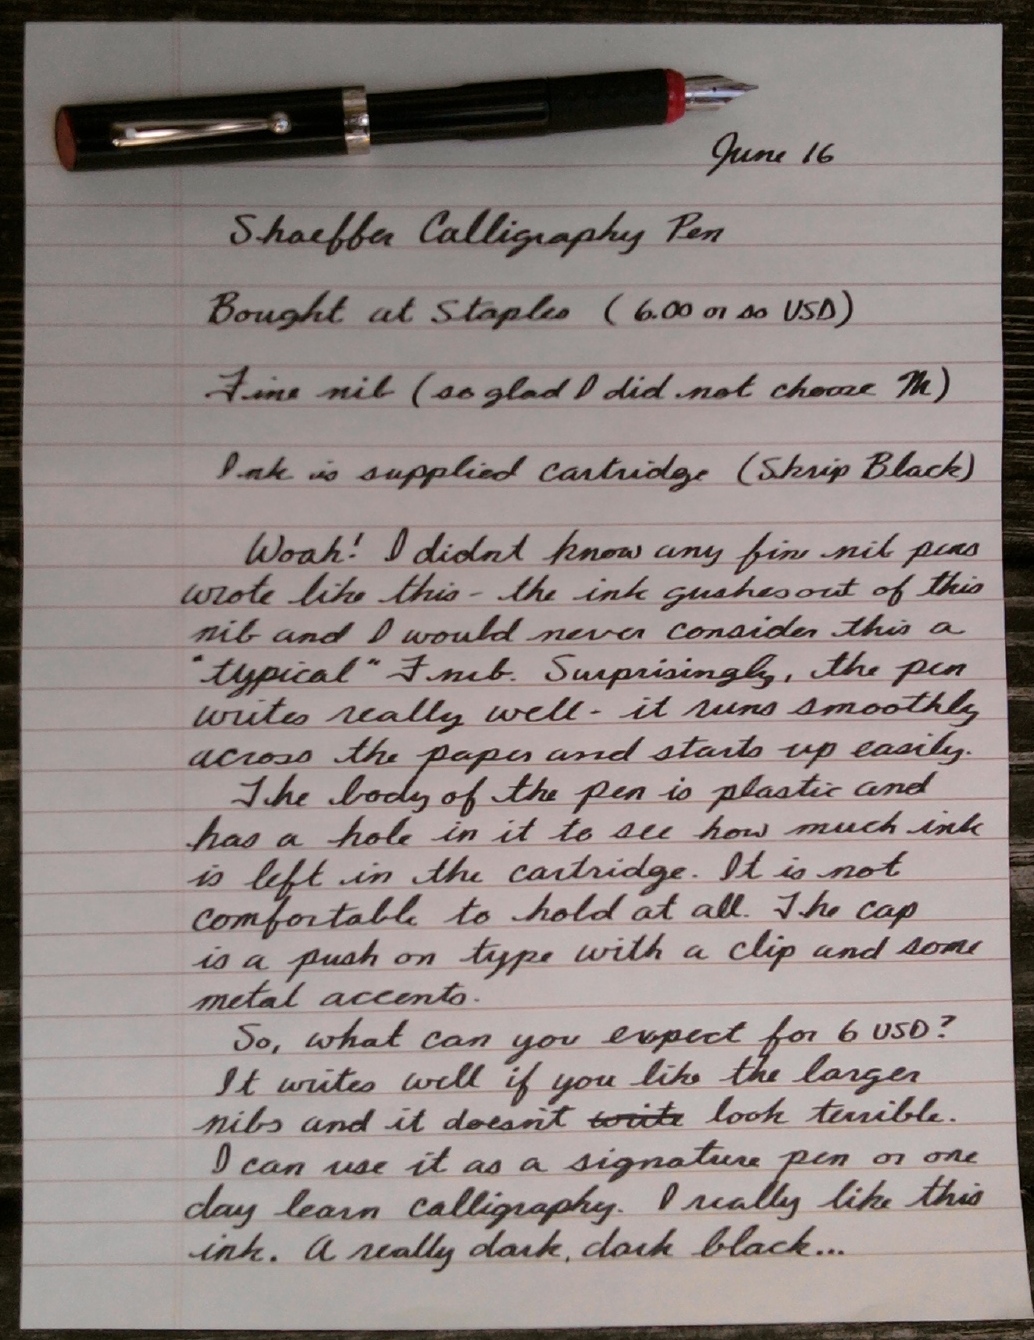 June 16
Shaeffer Calligraphy Pen
Bought at Staples (6.00 or so USD)
Fine nib (so glad I did not choose M)
Ink is supplied cartridge (Skrip Black)
Woah! I didnt know any fine nib pens
wrote like this - the ink gushes out of this
nib and I would never consider this a
"typical" F nib. Surprisingly, the pen
writes really well - it runs smoothly
across the paper and starts up easily.
The body of the pen is plastic and
has a hole in it to see how much ink
is left in the cartridge. It is not
comfortable to hold at all. The cap
is a push on type with a clip and some
metal accents.
So, what can you expect for 6 USD?
It writes well if you like the larger
nibs and it doesn't write look terrible.
I can use it as a signature pen or one
day learn calligraphy. I really like this
ink. A really dark, dark black...